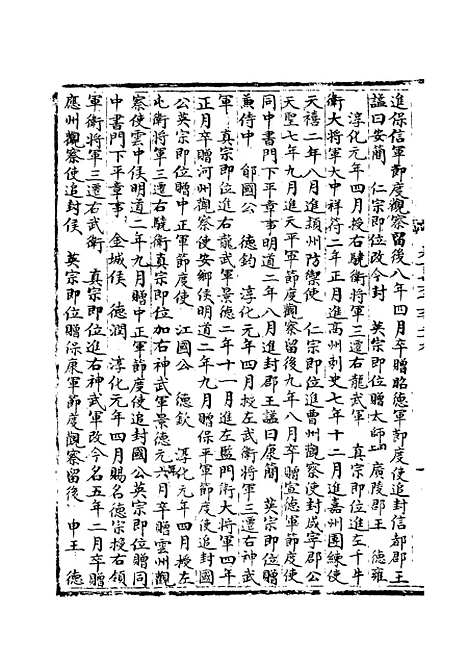 進保信軍節度觀察留後八年四月卒贈昭德軍節度使追封信都郡王
謚曰安簡 仁宗即位改今封 英宗即位贈太師 廣陵郡王 德雍
淳化元年四月授右驍衛將軍三遷右龍武軍 真宗即位進左千牛
衛大將軍大中祥符二年正月進高州刺史七年十二月進嘉州團練使
天禧二年八月進潁州防禦使 仁宗即位進曹州觀察使封咸寧郡公
天聖七年九月進天平軍節度觀察留後九年八月卒贈宣德軍節度使
同中書門下平章事明道二年八月進封郡王謚曰康簡 英宗即位贈
兼侍中 鄖國公 德鈞 淳化元年四月授左武衛將軍三遷右神武
軍 真宗即位進右龍武軍景德二年十一月進左監門衛大將軍四年
正月卒贈河州觀察使安鄉侯明道二年九月贈保平軍節度使追封國
公英宗即位贈中正軍節度使 江國公 德欽 淳化元年四月授左
屯衛將軍三遷右驍衛真宗即位加右神武軍景德元六月卒贈雲州觀
察使雲中侯明道二年九月贈中正軍節度使追封國公英宗即位贈同
中書門下平章事 金城侯 德潤 淳化元年四月賜名德宗授右領
軍衛將軍三遷右武衛 真宗即位進右神武軍改今名五年二月卒贈
應州觀察使追封侯 英宗即位贈保康軍節度觀察留後 申王 德